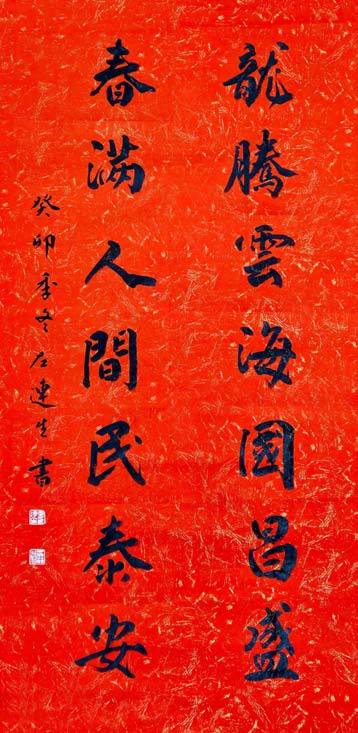 龍騰雲海國昌盛
春滿人間民泰安
癸卯季冬左連生書